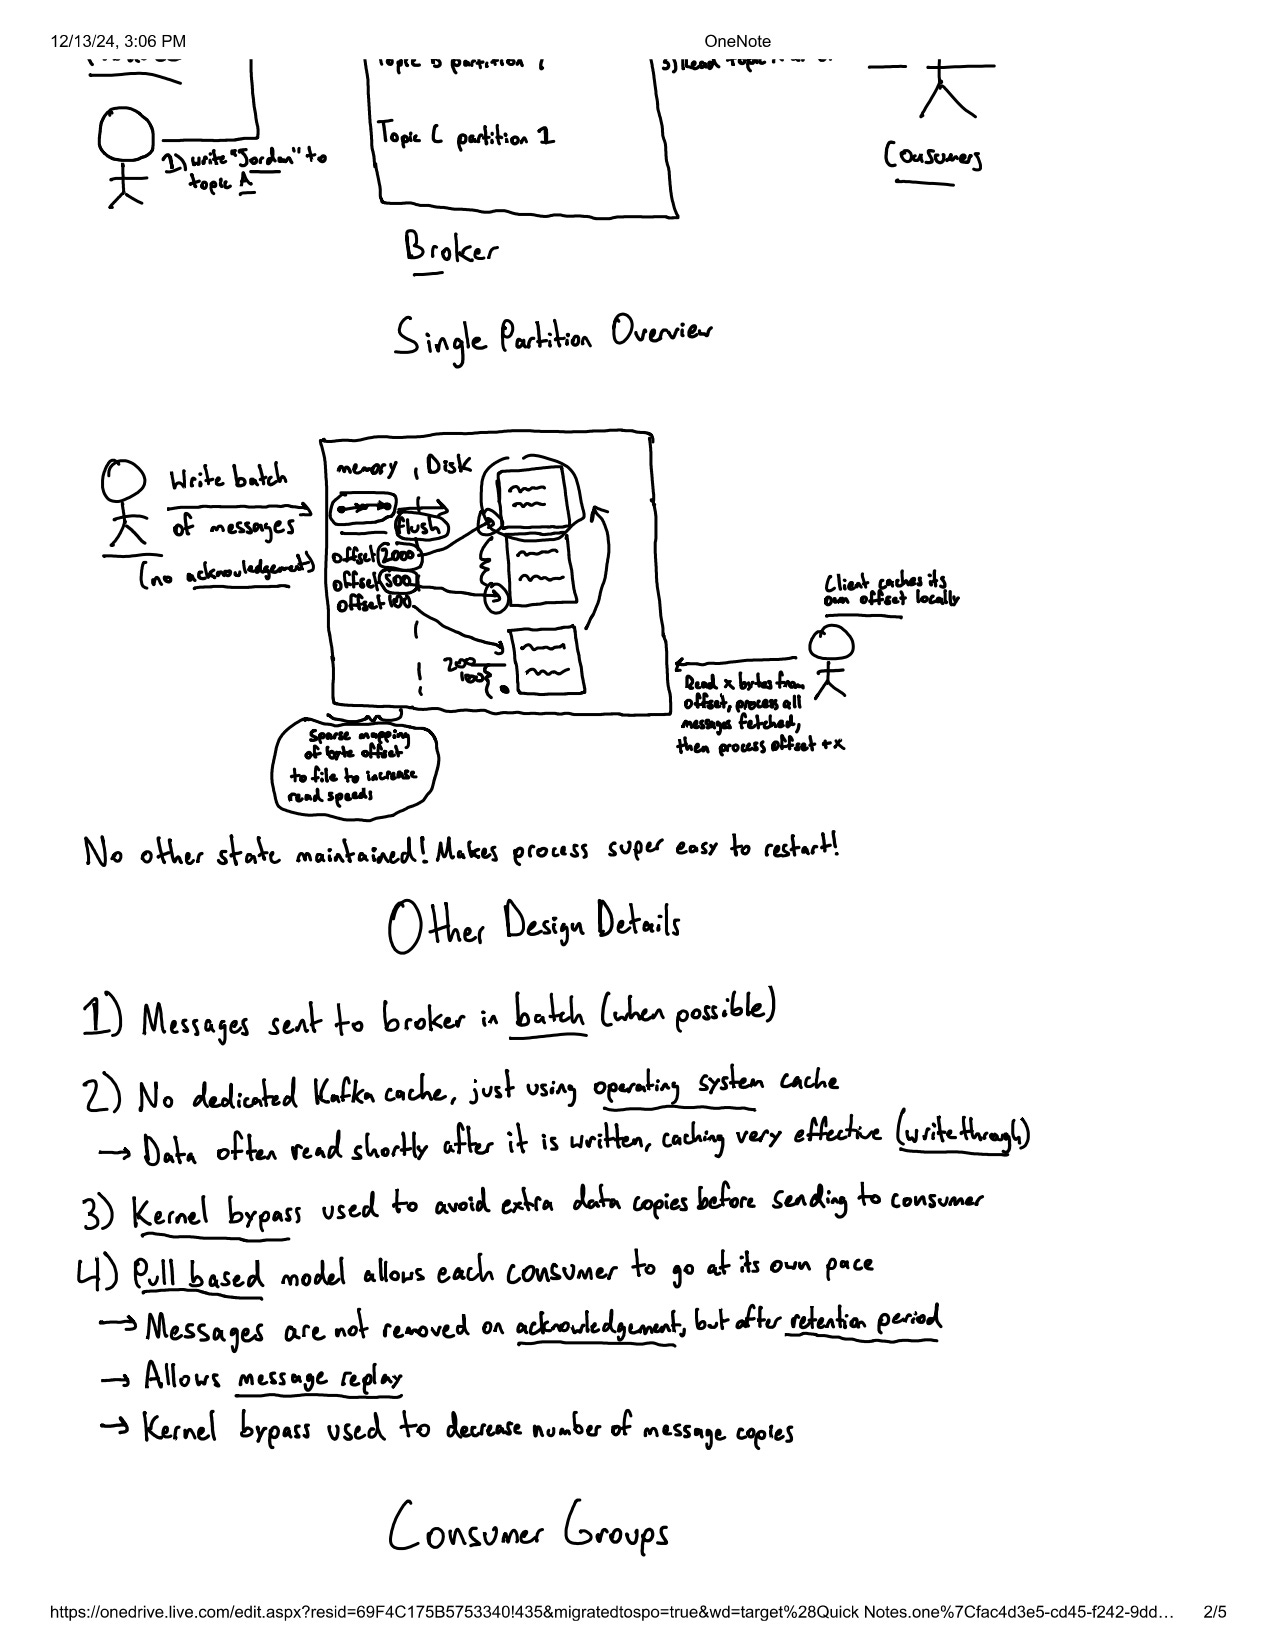 12/13/24, 3:06 PM
OneNote
Topic B partition
3) Read topic
Topic C partition 1
1) write "Jordan" to
topic A
Consumers
Broker
Single Partition Overview
Write batch
of messages
(no acknowledgement)
memory , Disk
flush
offset 2000
offset 500
offset 100
200
100
Sparse mapping
of byte offset
to file to increase
read speeds
Client caches its
own offset locally
Read x bytes from
offset, process all
messages fetched,
then process offset +x
No other state maintained! Makes process super easy to restart!
Other Design Details
1) Messages sent to broker in batch (when possible)
2) No dedicated Kafka cache, just using operating system cache
→ Data often read shortly after it is written, caching very effective (write through)
3) Kernel bypass used to avoid extra data copies before sending to consumer
4) Pull based model allows each consumer to go at its own pace
→ Messages are not removed on acknowledgement, but after retention period
→ Allows message replay
→ Kernel bypass used to decrease number of message copies
Consumer Groups
https://onedrive.live.com/edit.aspx?resid=69F4C175B5753340!435&migratedtospo=true&wd=target%28Quick Notes.one%7Cfac4d3e5-cd45-f242-9dd…
2/5